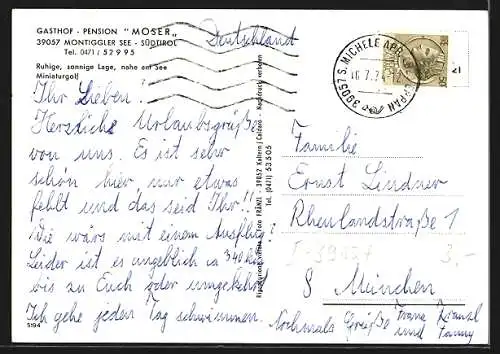 GASTHOF - PENSION "MOSER"
39057 MONTIGGLER SEE - SÜDTIROL
Tel. 0471 / 52995
Ruhige, sonnige Lage, nahe am See
Miniaturgolf
Deutschland
39057 S. MICHELE APPIANO
Ihr Lieben!
Herzliche Urlaubsgrüße
von uns. Es ist sehr
schön hier, nur etwas
fehlt und das seid Ihr!!
Wie wärs mit einem Ausflug?
Leider ist es angeblich ca 340 km
bis zu Euch oder umgekehrt.
Ich gehe jeden Tag schwimmen.
5194
Foto FRÄNZL - 39052 Kaltern / Caldaro - Nachdruck verboten
Tel. (0471) 53505
Familie
Ernst Lindner
Rheinlandstraße 1
I-39057
3,-
8 München
Nochmals Grüße Franz
und Fanny